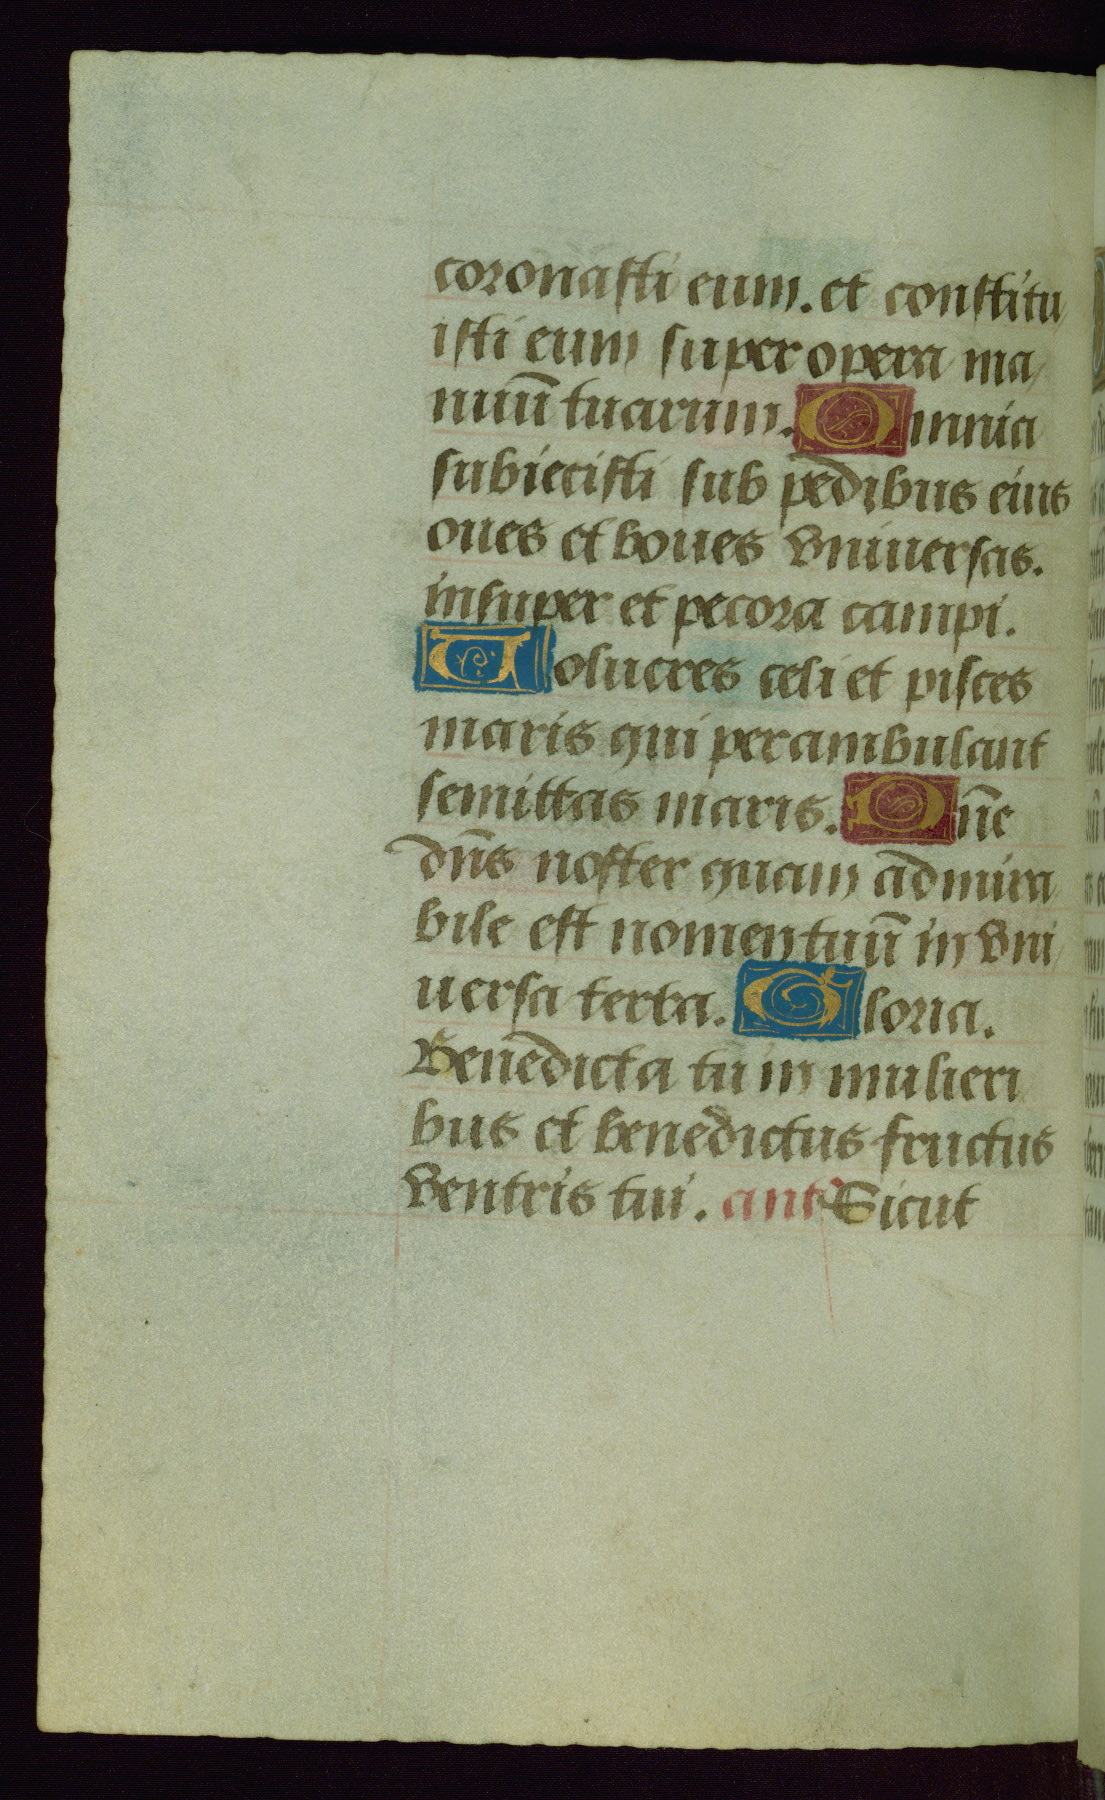 coronasti eum. et constitu
isti eum super opera ma/
nuū tuarum. Omnia
subiecisti sub pedibus eius
oues et boues vniuersas.
insuper et pecora campi.
Uolucres celi et pisces
maris qui perambulant
semittas maris. Dn̄e
dn̄s noster quam admira
bile est nomen tuū in vni/
uersa terra. Gloria.
Benedicta tu in mulieri
bus et benedictus fructus
ventris tui. ant Sicut